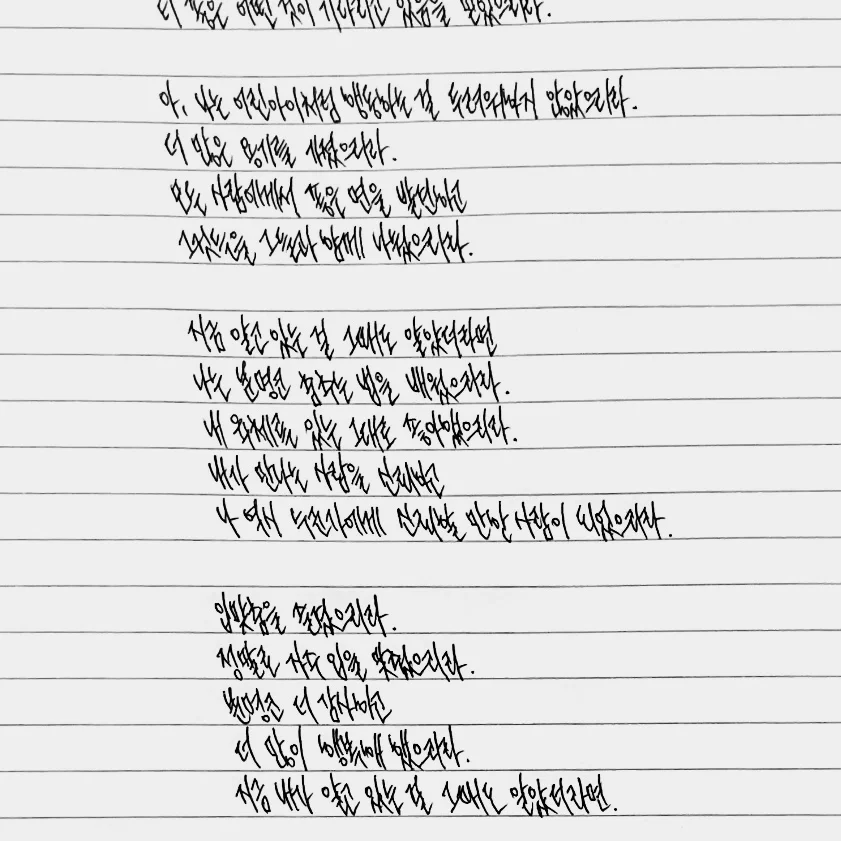 더 좋은 어떤 것이 기다리고 있음을 믿었으리라.
아, 나는 어린아이처럼 행동하는 걸 두려워하지 않았으리라.
더 많은 용기를 가졌으리라.
모든 사람에게서 좋은 면을 발견하고
그것들을 그들과 함께 나눴으리라.
지금 알고 있는 걸 그때도 알았더라면
나는 분명코 춤추는 법을 배웠으리라.
내 육체를 있는 그대로 좋아했으리라.
내가 만나는 사람을 신뢰하고
나 역시 누군가에게 신뢰할 만한 사람이 되었으리라.
입맞춤을 즐겼으리라.
정말로 자주 입을 맞췄으리라.
분명코 더 감사하고
더 많이 행복해 했으리라.
지금 내가 알고 있는 걸 그때도 알았더라면.